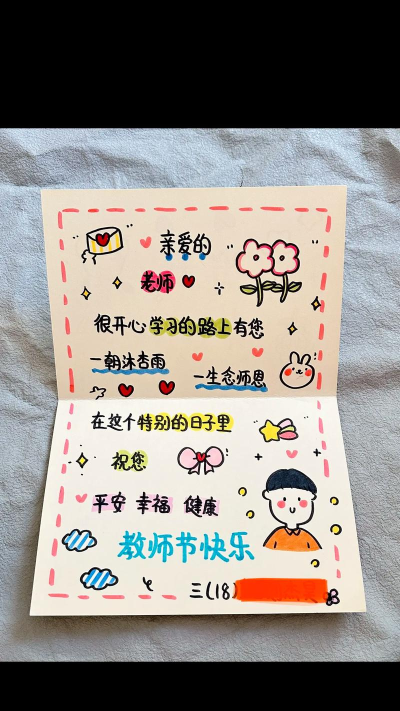 亲爱的
老师
很开心学习的路上有您
一朝沐杏雨
一生念师恩
在这个特别的日子里
祝您
平安 幸福 健康
教师节快乐
三(18)